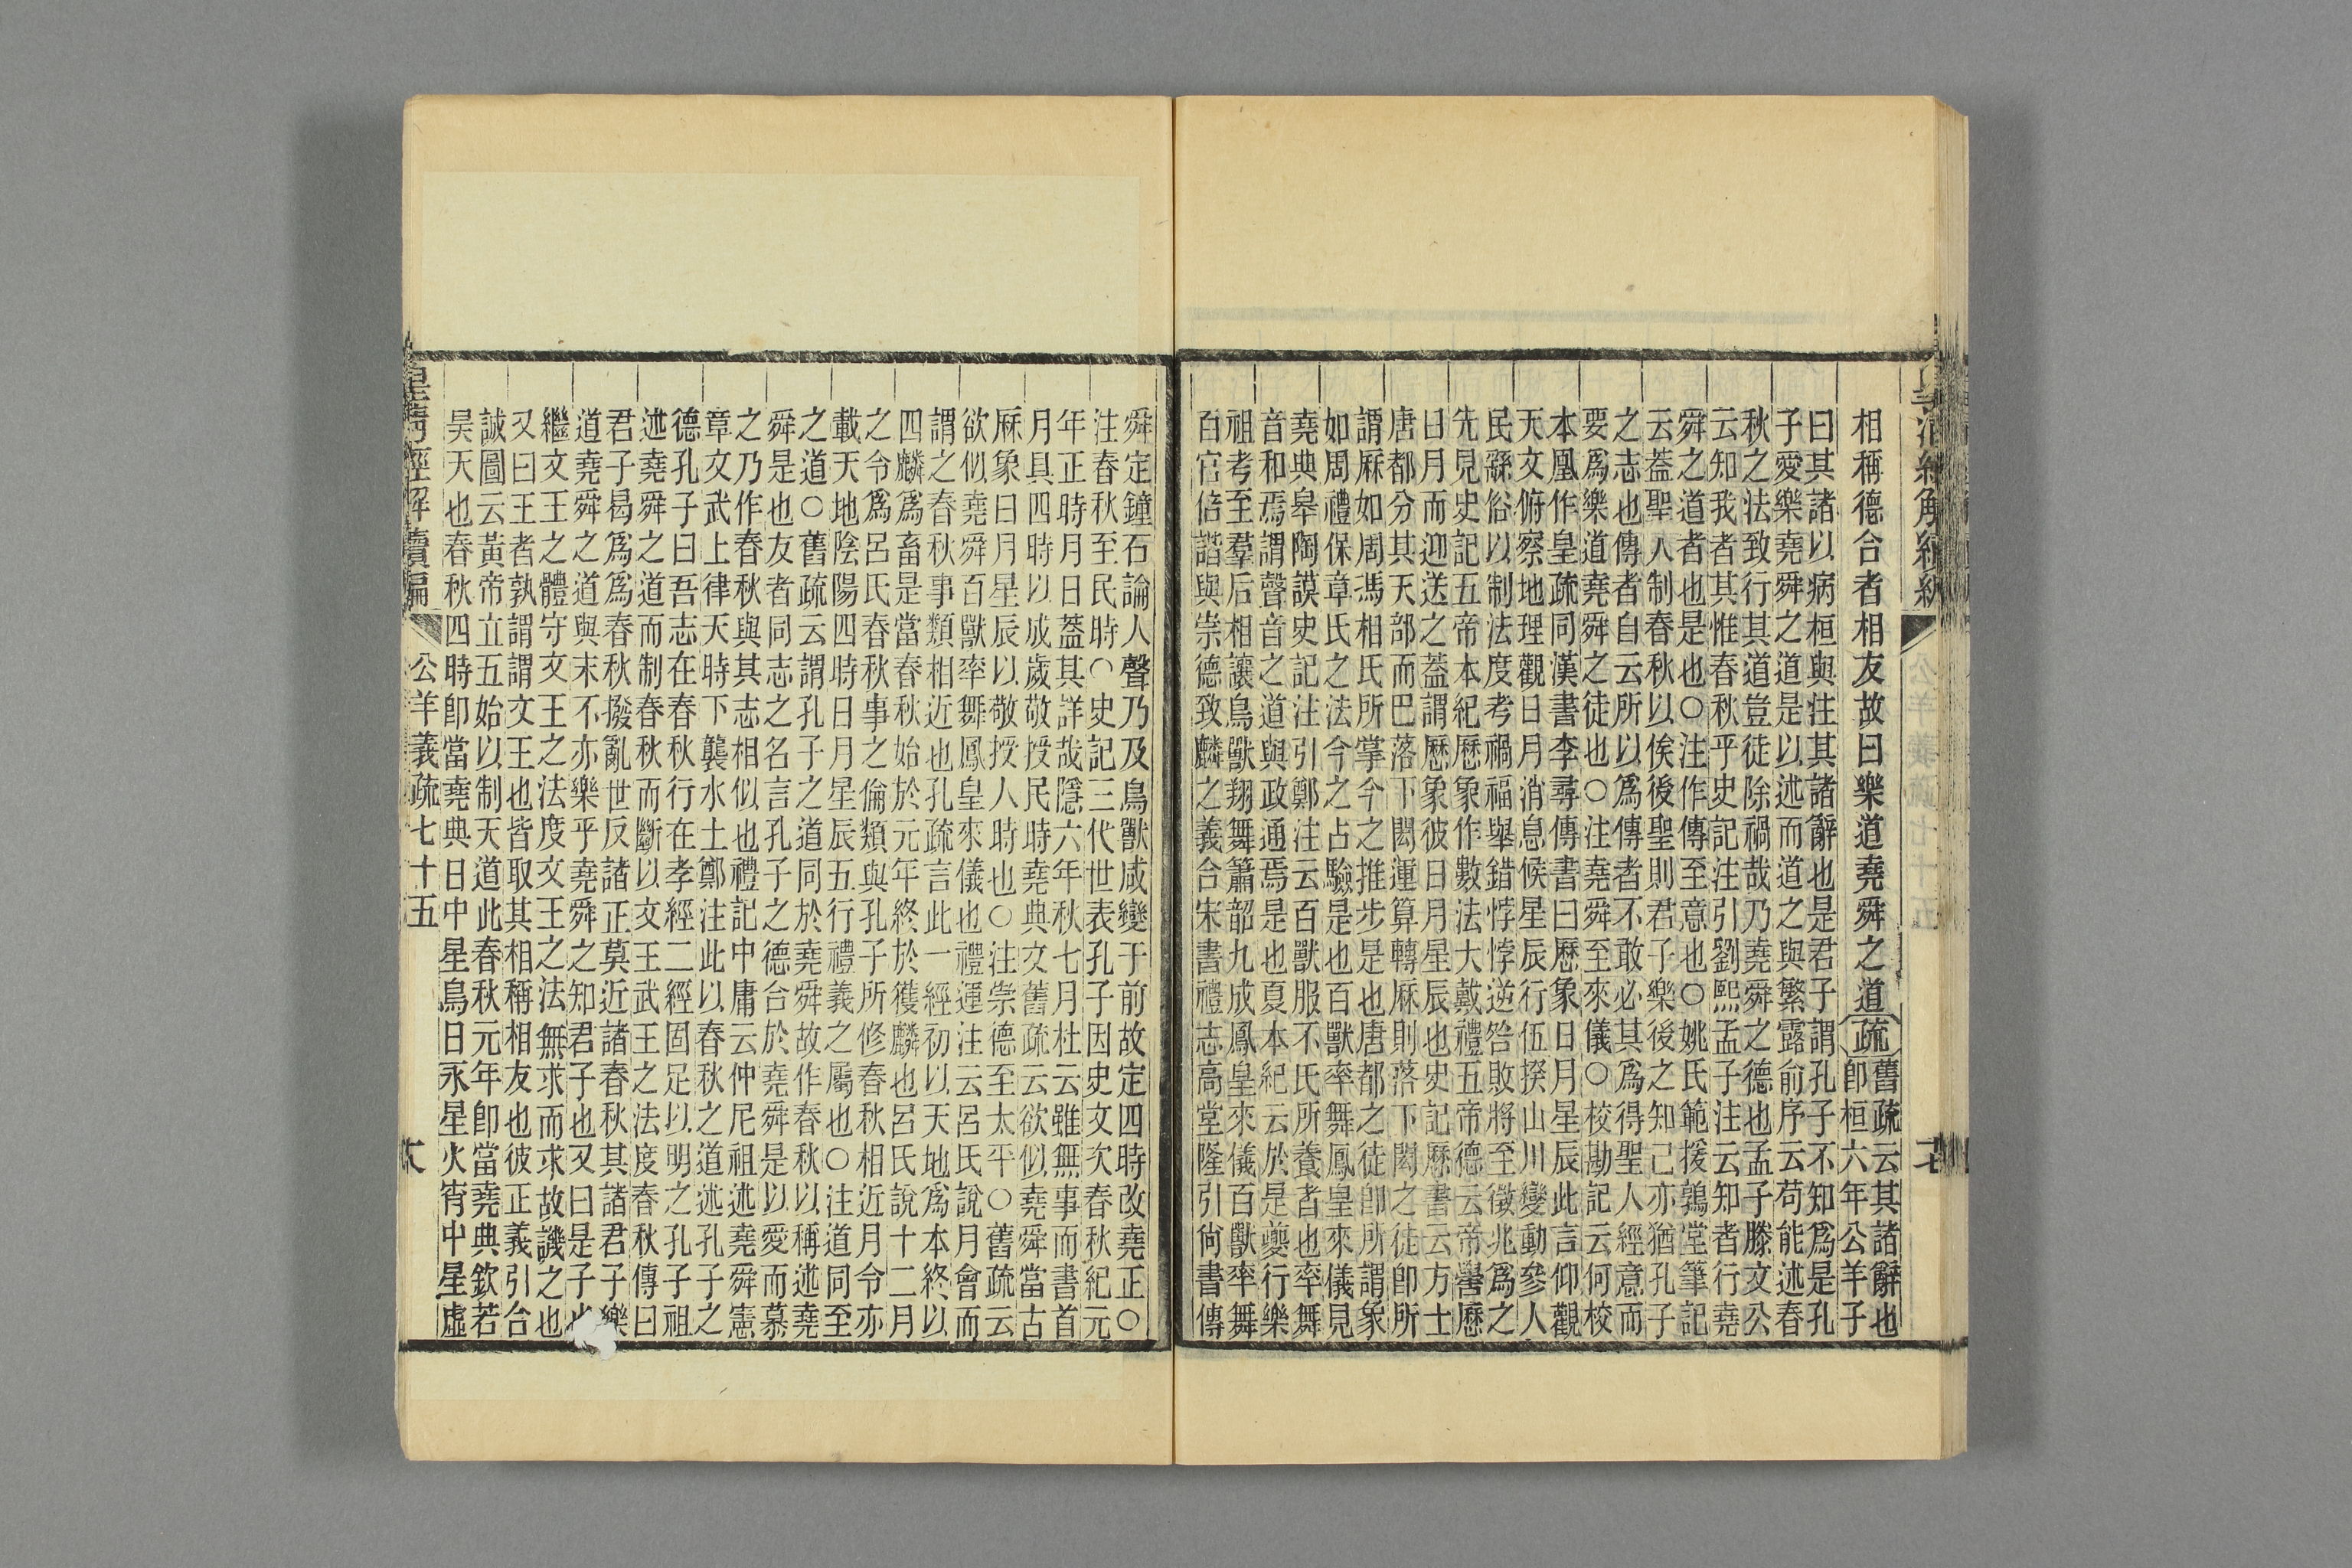 相稱德合者相友故曰樂道堯舜之道疏
舊疏云其諸辭也
卽桓六年公羊子
曰其諸以病桓與注其諸辭也是君子謂孔子不知爲是孔
子愛樂堯舜之道是以述而道之與繁露俞序云苟能述春
秋之法致行其道豈徒除禍哉乃堯舜之德也孟子滕文公
云知我者其惟春秋乎史記注引劉熙孟子注云知者行堯
舜之道者也是也○注作傳至意也○姚氏範援鶉堂筆記
云葢聖人制春秋以俟後聖則君子樂後之知己亦猶孔子
之志也傳者自云所以爲傳者不敢必其爲得聖人經意而
要爲樂道堯舜之徒也○注堯舜至來儀○校勘記云何校
本凰作皇疏同漢書李尋傳書曰歷象日月星辰此言仰觀
天文俯察地理觀日月消息候星辰行伍揆山川變動參人
民繇俗以制法度考禍福舉錯悖逆咎敗將至徵兆爲之
先見史記五帝本紀歷象作數法大戴禮五帝德云帝嚳歷
日月而迎送之葢謂歷象彼日月星辰也史記歷書云方士
唐都分其天部而巴落下閎運算轉厤則落下閎之徒卽所
謂厤如周馮相氏所掌今之推步是也唐都之徒卽所謂象
如周禮保章氏之法今之占驗是也百獸率舞鳳皇來儀見
堯典皋陶謨史記注引鄭注云百獸服不氏所養者也率舞
音和焉謂聲音之道與政通焉是也夏本紀云於是夔行樂
祖考至羣后相讓鳥獸翔舞簫韶九成鳳皇來儀百獸率舞
百官信諧與崇德致麟之義合宋書禮志高堂隆引尙書傳
舜定鐘石論人聲乃及鳥獸咸變于前故定四時改堯正○
注春秋至民時○史記三代世表孔子因史文次春秋紀元
年正時月日葢其詳哉隱六年秋七月杜云雖無事而書首
月具四時以成歲敬授民時堯典文舊疏云欲似堯舜當古
厤象日月星辰以敬授人時也○注崇德至太平○舊疏云
欲似堯舜百獸率舞鳳皇來儀也禮運注云呂氏說月會而
謂之春秋事類相近也孔疏言此一經初以天地爲本終以
四麟爲畜是當春秋始於元年終於獲麟也呂氏說十二月
之令爲呂氏春秋事之倫類與孔子所修春秋相近月令亦
載天地陰陽四時日月星辰五行禮義之屬也○注道同至
之道○舊疏云謂孔子之道同於堯舜故作春秋以稱述堯
舜是也友者同志之名言孔子之德合於堯舜是以愛而慕
之乃作春秋與其志相似也禮記中庸云仲尼祖述堯舜憲
章文武上律天時下襲水土鄭注此以春秋之道述孔子之
德孔子曰吾志在春秋行在孝經二經固足以明之孔子祖
述堯舜之道而制春秋而斷以文王武王之法度春秋傳曰
君子曷爲爲春秋撥亂世反諸正莫近諸春秋其諸君子樂
道堯舜之道與末不亦樂乎堯舜之知君子也又曰是子也
繼文王之體守文王之法度文王之法無求而求故譏之也
又曰王者孰謂謂文王也皆取其相稱相友也彼正義引合
誠圖云黃帝立五始以制天道此春秋元年卽當堯典欽若
昊天也春秋四時卽當堯典日中星鳥日永星火宵中星虛
皇淸經解續編 公羊義疏七十五